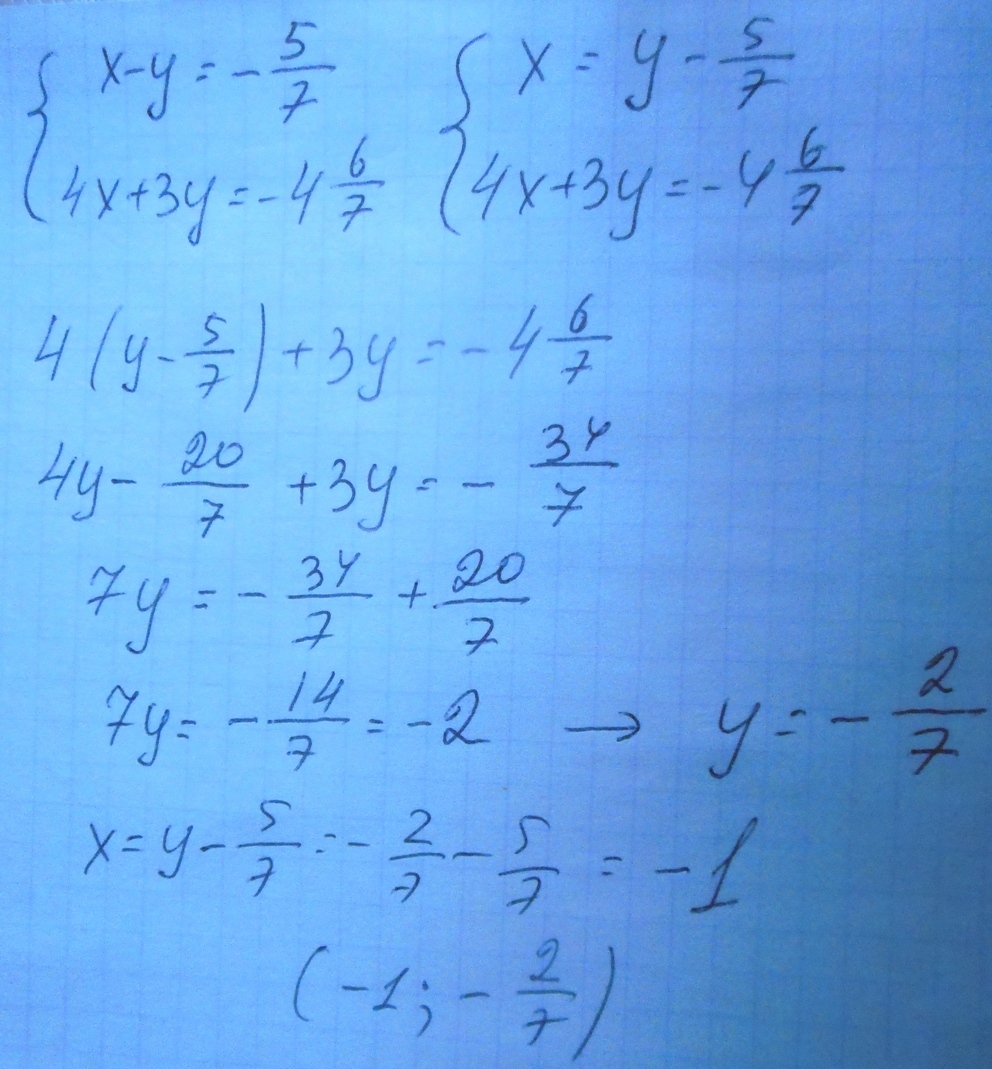 { x-y = -5/7    { x = y - 5/7
{ 4x+3y = -4 6/7    { 4x+3y = -4 6/7
4(y - 5/7) + 3y = -4 6/7
4y - 20/7 + 3y = - 34/7
7y = - 34/7 + 20/7
7y = - 14/7 = -2 → y = - 2/7
x = y - 5/7 = - 2/7 - 5/7 = -1
(-1; - 2/7)